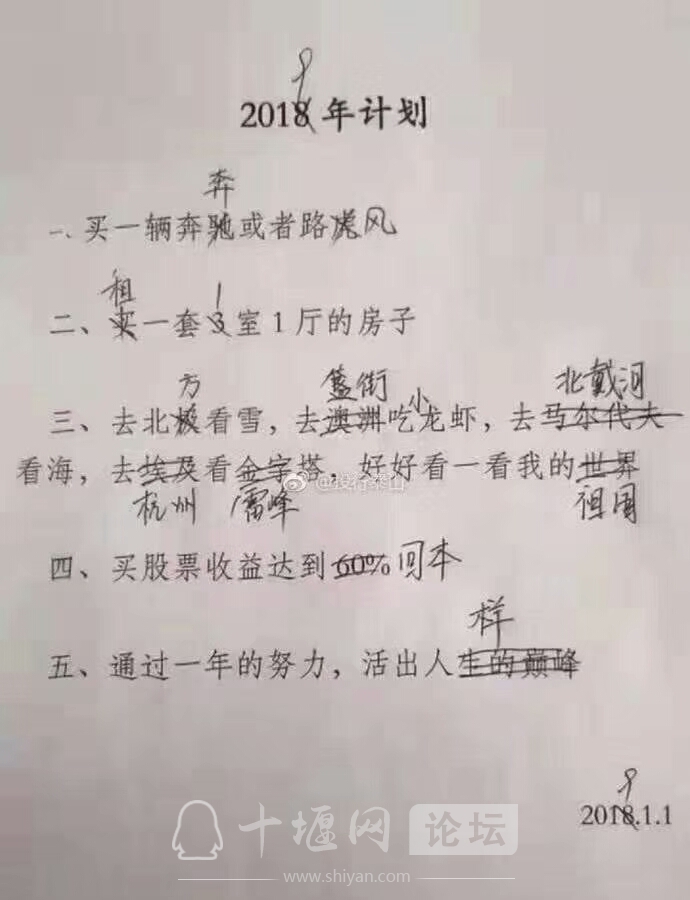 9
2018年计划
奔
一、买一辆奔驰或者路虎风
租 1
二、买一套3室1厅的房子
方 簋街 小 北戴河
三、去北极看雪，去澳洲吃龙虾，去马尔代夫
看海，去埃及看金字塔，好好看一看我的世界
杭州 雷峰 祖国
@投行泰山
四、买股票收益达到60%回本
样
五、通过一年的努力，活出人生的巅峰
9
2018.1.1
十堰网 论坛
www.shiyan.com